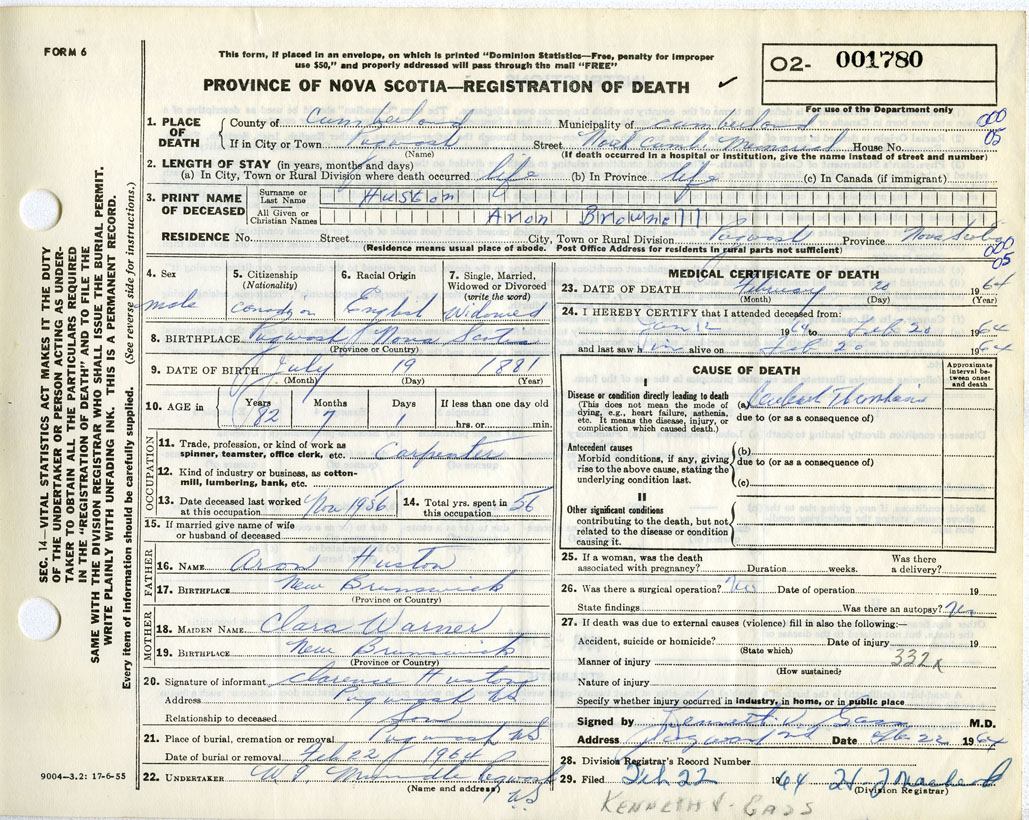 FORM 6
This form, if placed in an envelope, on which is printed "Dominion Statistics—Free, penalty for improper
use $50," and properly addressed will pass through the mail "FREE"
PROVINCE OF NOVA SCOTIA—REGISTRATION OF DEATH ✓
O2- 001780
For use of the Department only
000
05
1. PLACE OF DEATH { County of Cumberland Municipality of Cumberland
If in City or Town Pugwash Street North Cumb. Memorial House No.
(Name) (If death occurred in a hospital or institution, give the name instead of street and number)
2. LENGTH OF STAY (in years, months and days)
(a) In City, Town or Rural Division where death occurred life (b) In Province life (c) In Canada (if immigrant)
3. PRINT NAME OF DECEASED { Surname or Last Name Huston
All Given or Christian Names Aron Brownell
RESIDENCE No. Street City, Town or Rural Division Pugwash Province Nova Scotia
(Residence means usual place of abode. Post Office Address for residents in rural parts not sufficient)
05
4. Sex male
5. Citizenship (Nationality) Canadian
6. Racial Origin English
7. Single, Married, Widowed or Divorced (write the word) Widowed
8. BIRTHPLACE Pugwash Nova Scotia
(Province or Country)
9. DATE OF BIRTH July 19 1881
(Month) (Day) (Year)
10. AGE in { Years 82 Months 7 Days 1 If less than one day old hrs. or min.
OCCUPATION
11. Trade, profession, or kind of work as
spinner, teamster, office clerk, etc. Carpenter
12. Kind of industry or business, as cotton-
mill, lumbering, bank, etc.
13. Date deceased last worked at this occupation Nov 1956
14. Total yrs. spent in this occupation 56
15. If married give name of wife
or husband of deceased
FATHER
16. NAME Aron Huston
17. BIRTHPLACE New Brunswick
(Province or Country)
MOTHER
18. MAIDEN NAME Clara Warner
19. BIRTHPLACE New Brunswick
(Province or Country)
20. Signature of informant Clarence Huston
Address Pugwash NS
Relationship to deceased Son
21. Place of burial, cremation or removal Pugwash NS
Date of burial or removal Feb 22 1964
22. UNDERTAKER Pugwash
(Name and address) N.S
MEDICAL CERTIFICATE OF DEATH
23. DATE OF DEATH February 20 1964
(Month) (Day) (Year)
24. I HEREBY CERTIFY that I attended deceased from:
Jan 12 1964 to Feb 20 1964
and last saw him alive on Feb 20 1964
CAUSE OF DEATH
Approximate interval be-tween onset and death
I
Disease or condition directly leading to death
(This does not mean the mode of
dying, e.g., heart failure, asthenia,
etc. It means the disease, injury, or
complication which caused death.)
(a)
due to (or as a consequence of)
Antecedent causes
Morbid conditions, if any, giving
rise to the above cause, stating the
underlying condition last.
(b)
due to (or as a consequence of)
(c)
II
Other significant conditions
contributing to the death, but not
related to the disease or condition
causing it.
25. If a woman, was the death associated with pregnancy? Duration weeks. Was there a delivery?
26. Was there a surgical operation? No Date of operation 19
State findings Was there an autopsy? No
27. If death was due to external causes (violence) fill in also the following:—
Accident, suicide or homicide? Date of injury 19
(State which)
332x
Manner of injury
(How sustained)
Nature of injury
Specify whether injury occurred in industry, in home, or in public place
Signed by Kenneth V. Gass M.D.
Address Pugwash NS Date Feb 22 1964
28. Division Registrar's Record Number
29. Filed Feb 22 1964
(Division Registrar)
KENNETH V. GASS
9004—3.2: 17-6-55
SEC. 14—VITAL STATISTICS ACT MAKES IT THE DUTY
OF THE UNDERTAKER OR PERSON ACTING AS UNDER-
TAKER TO OBTAIN ALL THE PARTICULARS REQUIRED
IN THE "REGISTRATION OF DEATH" AND TO FILE THE
SAME WITH THE DIVISION REGISTRAR WHO SHALL ISSUE THE BURIAL PERMIT.
WRITE PLAINLY WITH UNFADING INK. THIS IS A PERMANENT RECORD.
Every item of information should be carefully supplied. (See reverse side for instructions.)